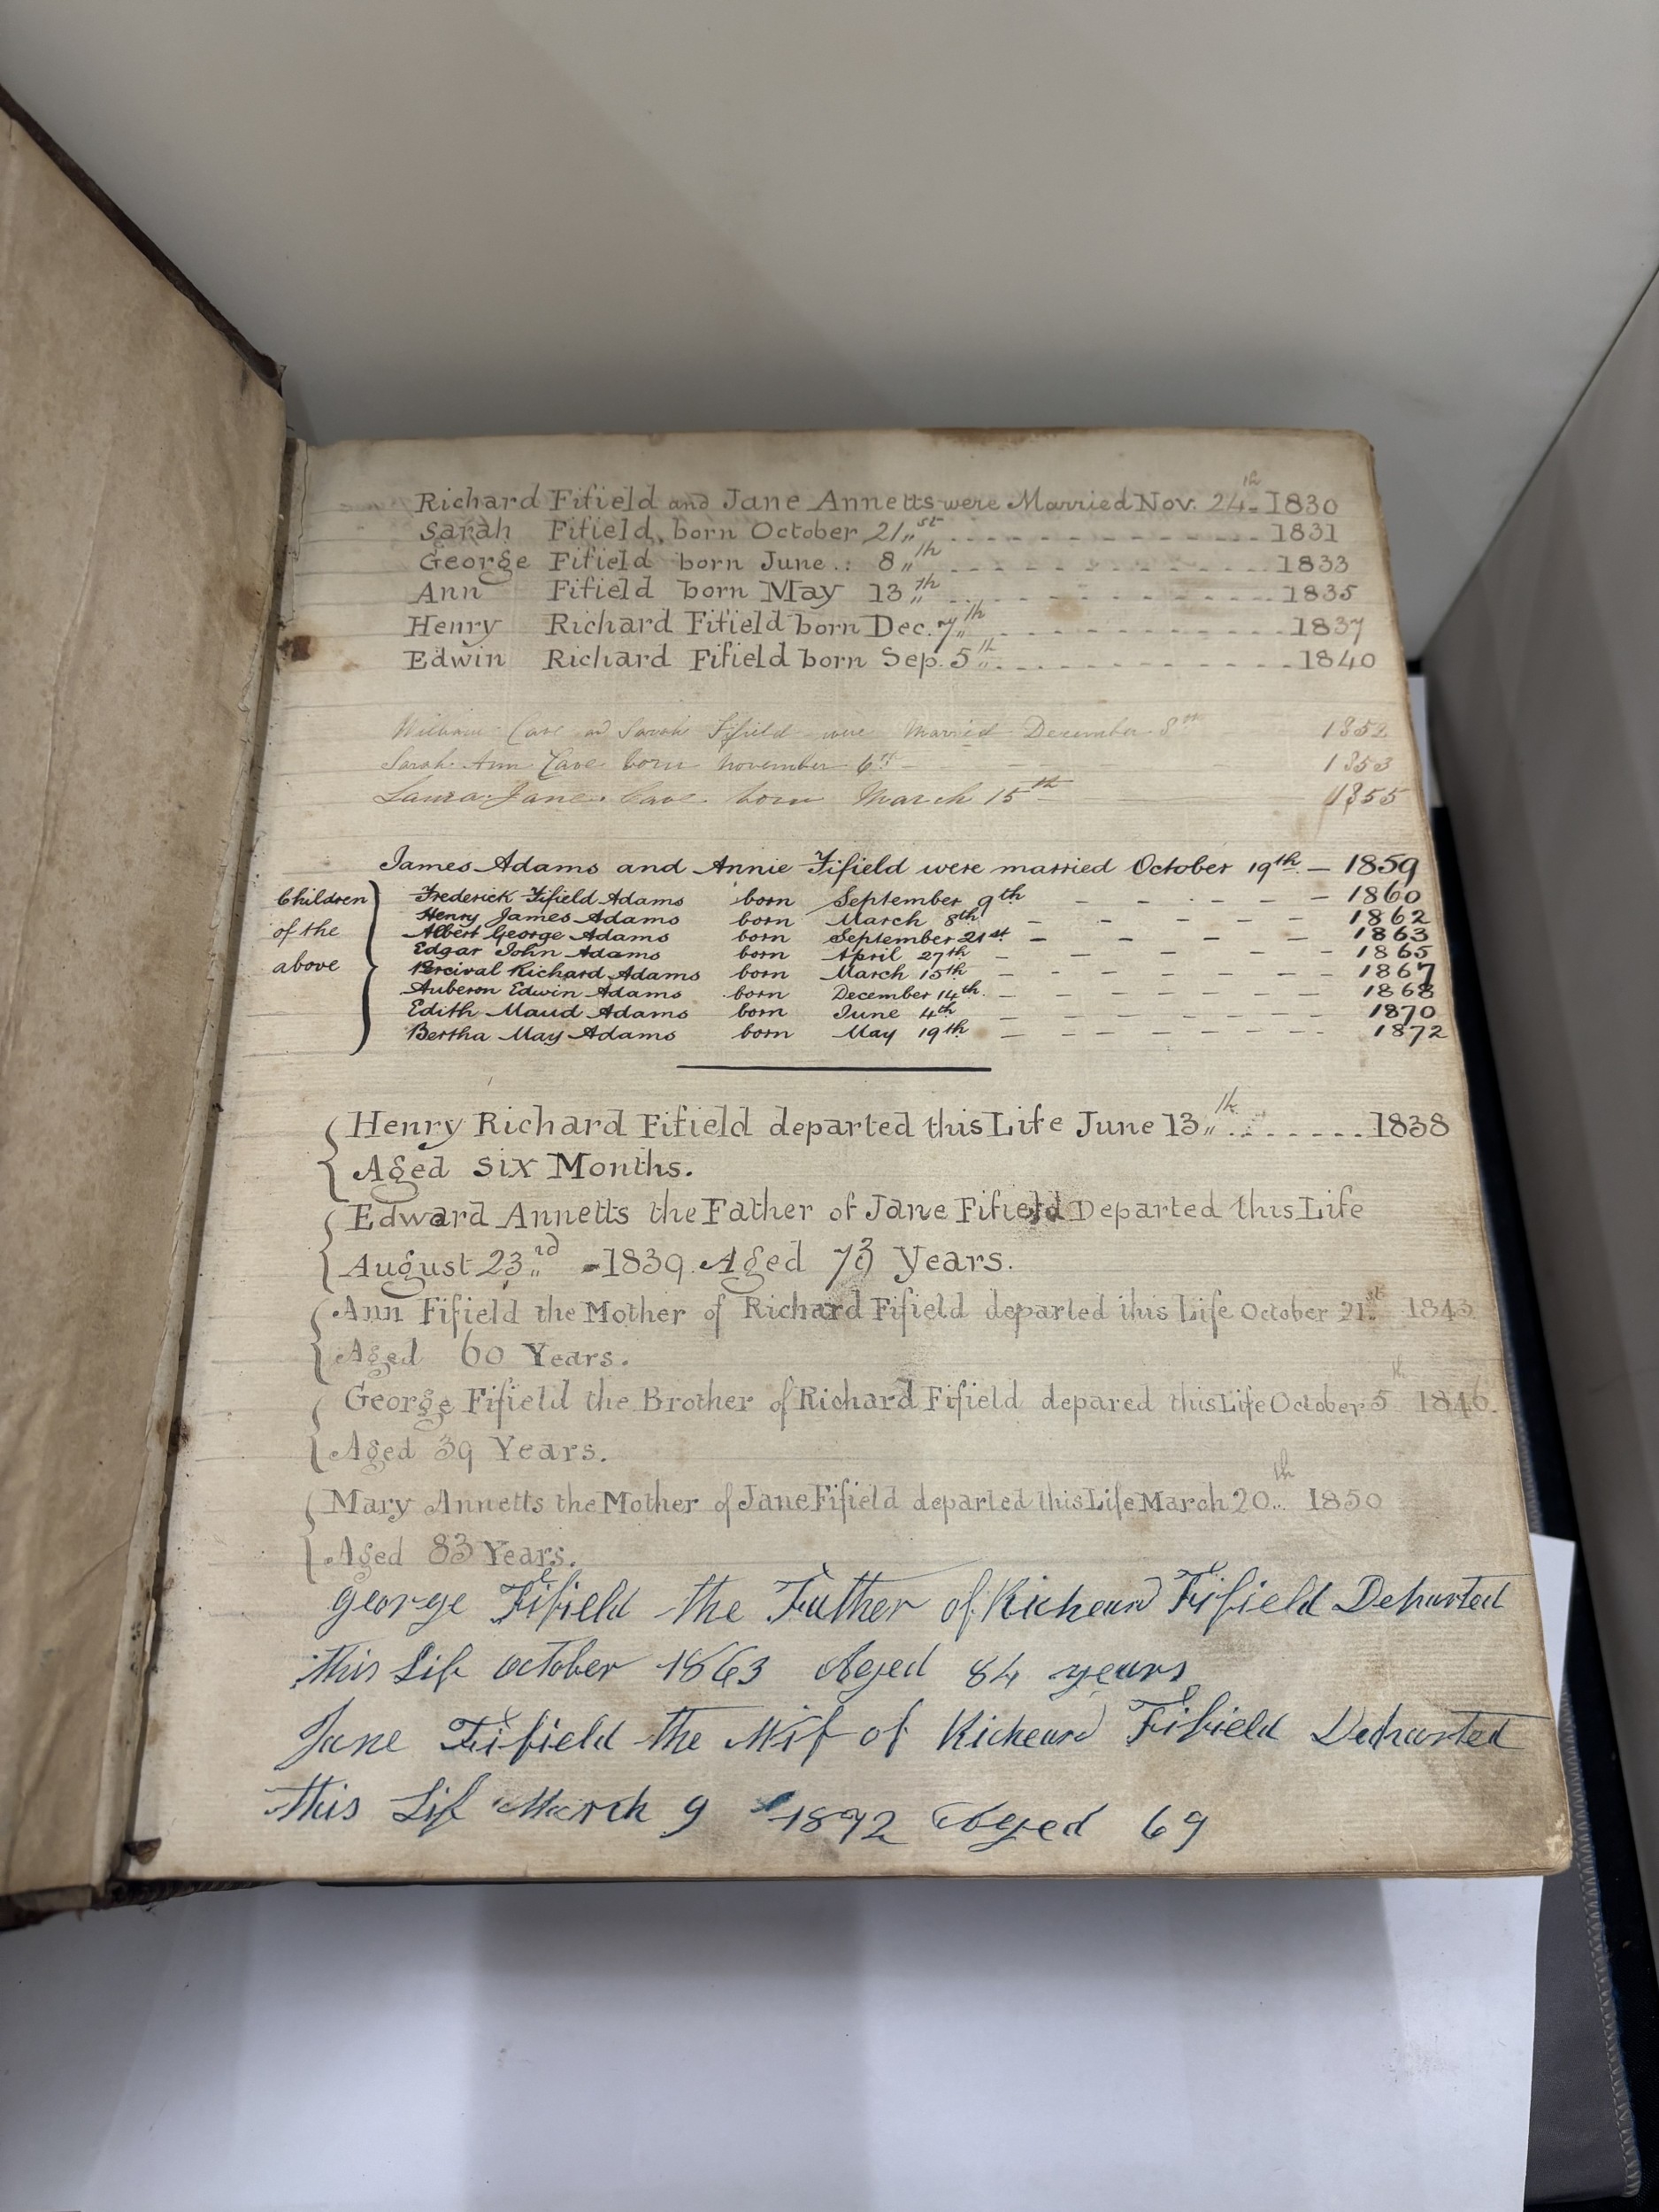 Richard Fifield and Jane Annetts were Married Nov. 24th 1830
Sarah Fifield, born October 21st 1831
George Fifield born June 8th 1833
Ann Fifield born May 13th 1835
Henry Richard Fifield born Dec. 7th 1837
Edwin Richard Fifield born Sep. 5th 1840
William Cave and Sarah Fifield were Married December 8th 1852
Sarah Ann Cave born November 6th 1853
Laura Jane Cave born March 15th 1855
James Adams and Annie Fifield were married October 19th. – 1859
Children of the above
Frederick Fifield Adams born September 9th 1860
Henry James Adams born March 8th 1862
Albert George Adams born September 21st 1863
Edgar John Adams born April 27th 1865
Percival Richard Adams born March 15th 1867
Auberon Edwin Adams born December 14th. 1868
Edith Maud Adams born June 4th 1870
Bertha May Adams born May 19th 1872
Henry Richard Fifield departed this Life June 13th 1838
Aged six Months.
Edward Annetts the Father of Jane Fifield Departed this Life
August 23rd 1839. Aged 73 Years.
Ann Fifield the Mother of Richard Fifield departed this Life October 21st 1843
Aged 60 Years.
George Fifield the Brother of Richard Fifield depared this Life October 5th 1846.
Aged 39 Years.
Mary Annetts the Mother of Jane Fifield departed this Life March 20th 1850
Aged 83 Years.
george Fifield the Father of Richeard Fifield Departed
this Life october 1863 Aged 84 years
Jane Fifield the Wif of Richeard Fifield Departed
this Life March 9 1892 Aged 69